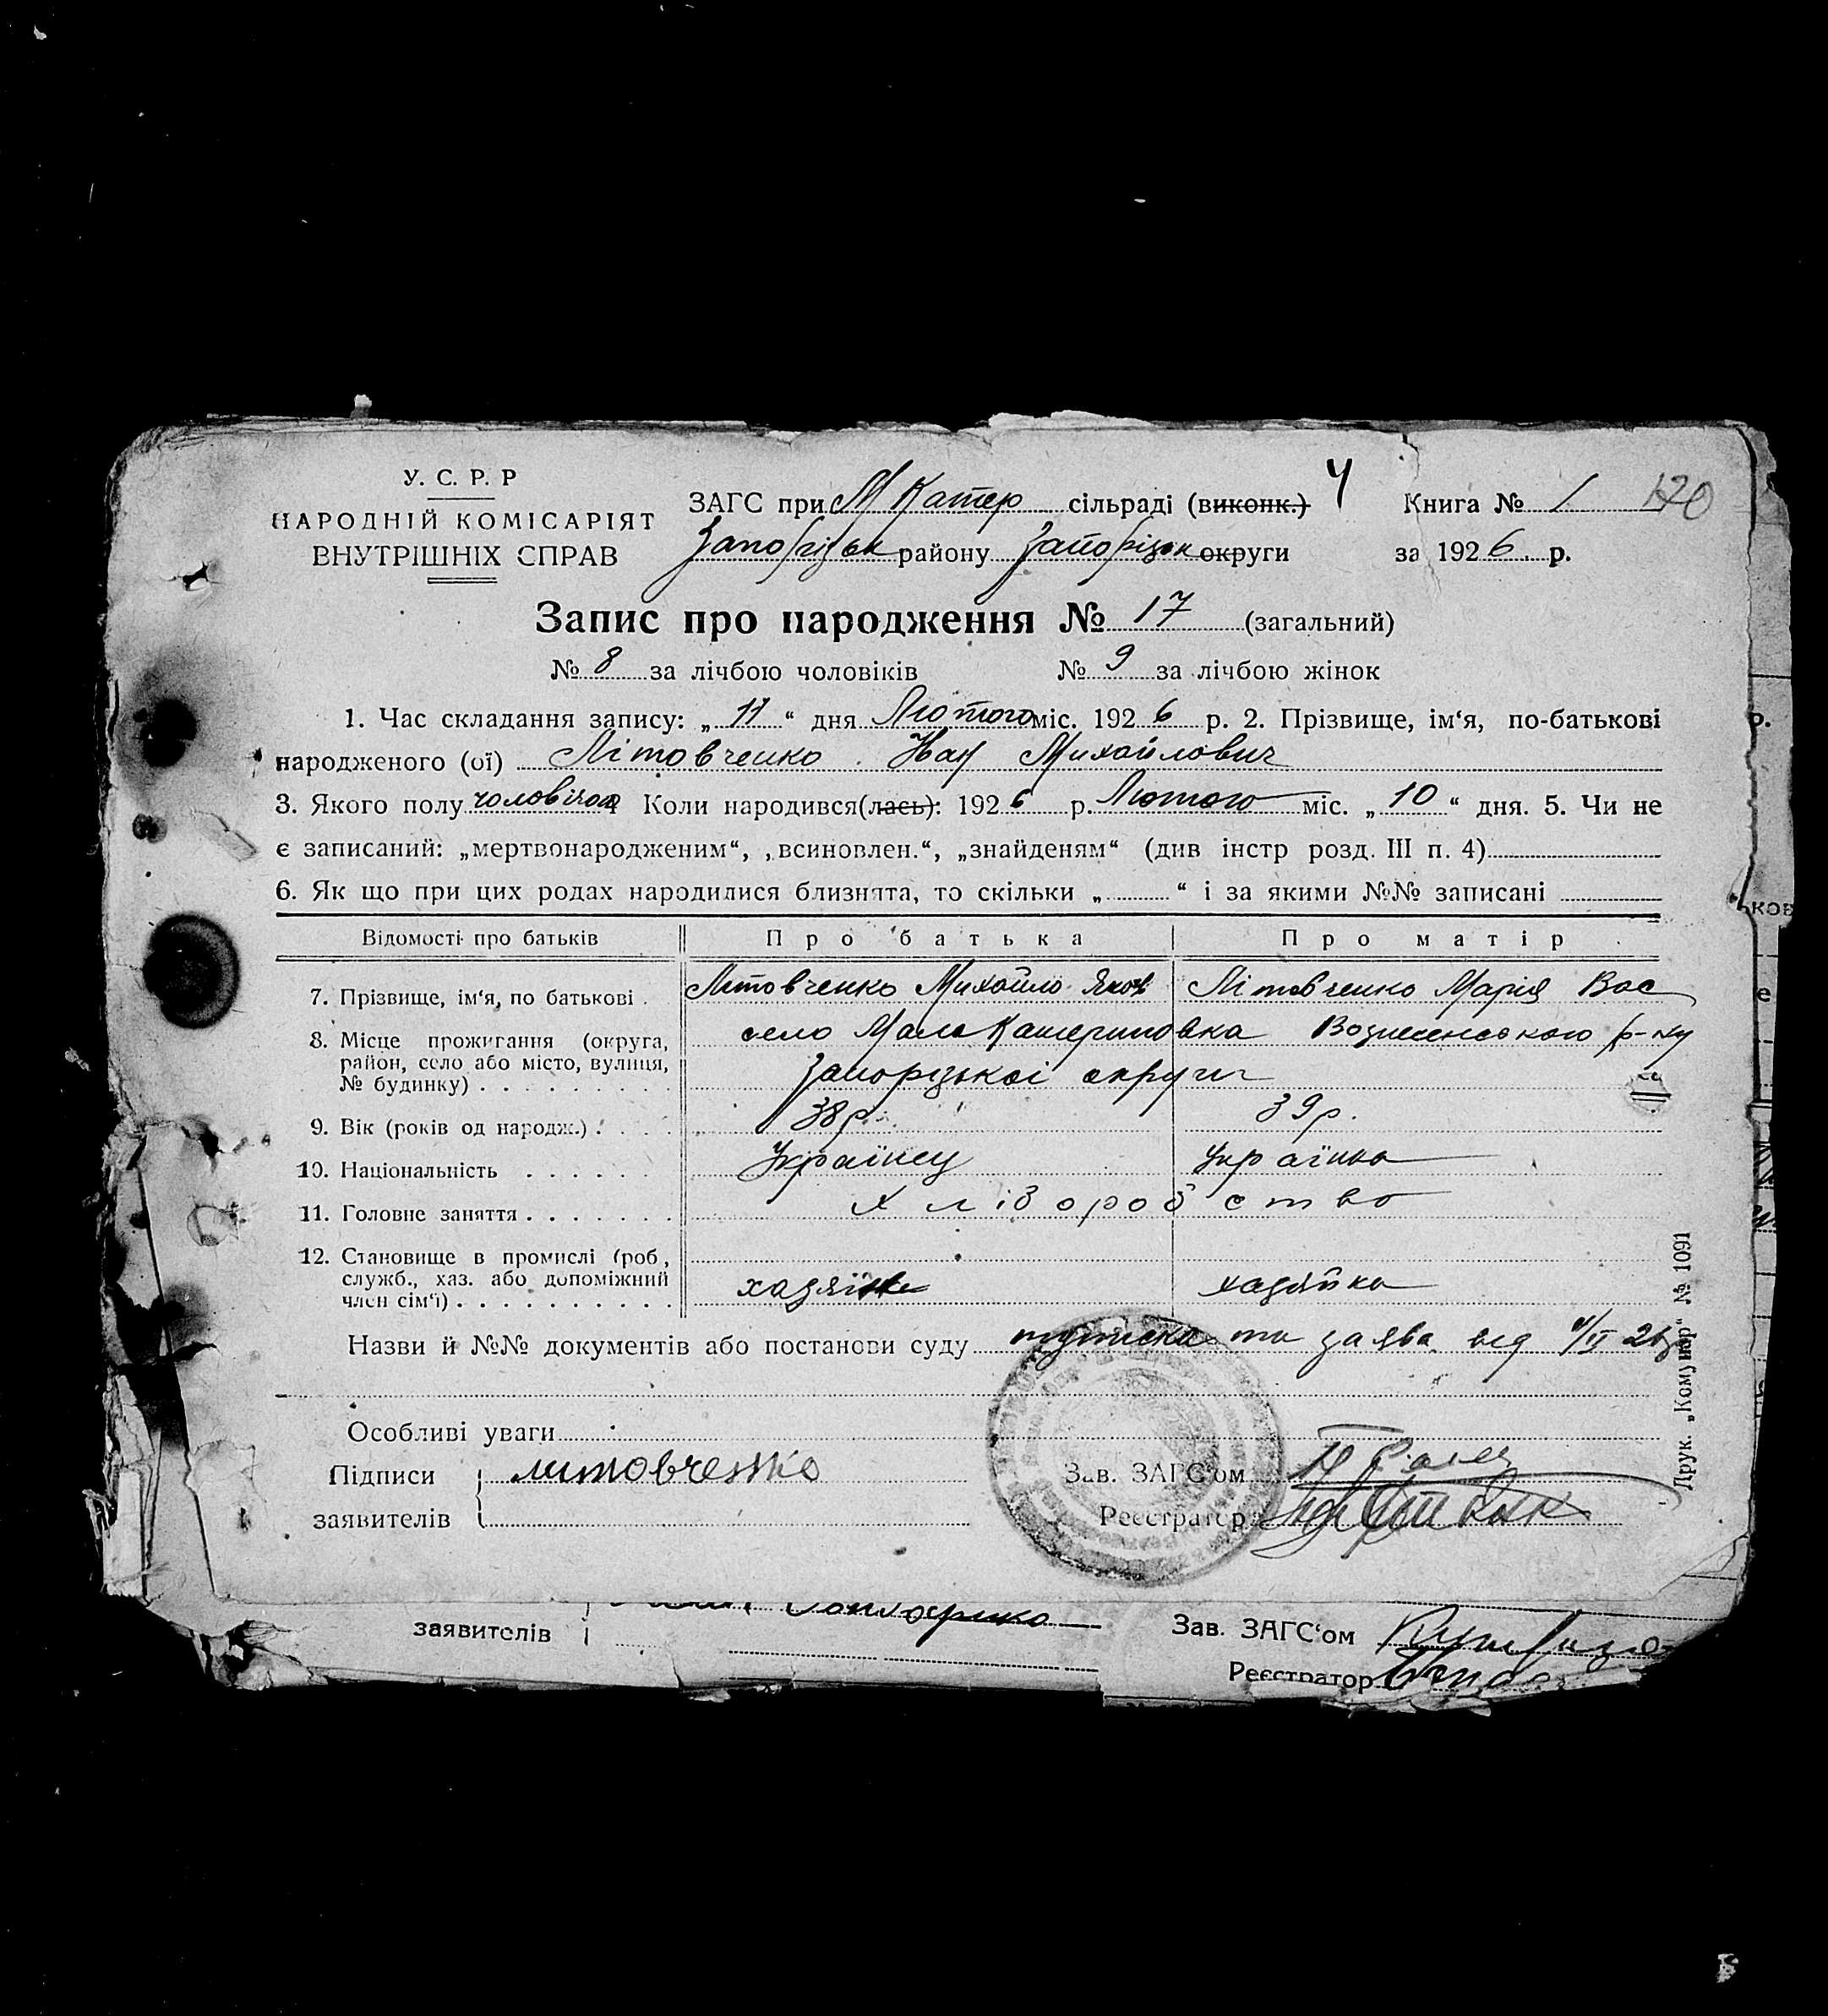 У. С. Р. Р
НАРОДНІЙ КОМІСАРІЯТ
ВНУТРІШНІХ СПРАВ
ЗАГС при М Катер сільраді (виконк.) Ч Книга № 1 120
Запорізьк району Запорізьк округи за 1926 р.
Запис про народження № 17 (загальний)
№ 8 за лічбою чоловіків № 9 за лічбою жінок
1. Час складання запису: „ 11 “ дня Лютого міс. 1926 р. 2. Прізвище, ім‘я, по-батькові
народженого (ої) Літовченко Михайлович
3. Якого полу чоловічого 4 Коли народився(лась): 1926 р. Лютого міс. „ 10 “ дня. 5. Чи не
є записаний: „мертвонародженим“, „всиновлен.“, „знайденям“ (див інстр розд. III п. 4)
6. Як що при цих родах народилися близнята, то скільки „ “ і за якими №№ записані
Відомості про батьків Про батька Про матір
7. Прізвище, ім‘я, по батькові Літовченко Михайло Яков Літовченко Марія Вас
8. Місце прожигання (округа, село Мала Катериновка Вознесенського р-ну
район, село або місто, вулиця,
№ будинку) Запорізької округи
9. Вік (років од народж.) 38 р. 39 р.
10. Національність Українец Українка
11. Головне заняття Хліборобство
12. Становище в промислі (роб,
служб., хаз. або допоміжний хазяїн хазяйка
член сім‘ї)
Назви й №№ документів або постанови суду та заява від
Особливі уваги
Підписи литовченко Зав. ЗАГС‘ом
заявителів Реєстратор
Друк. „Комунар“ № 1091
заявителів Зав. ЗАГС‘ом
Реєстратор